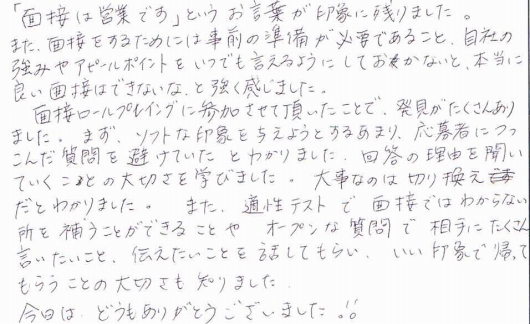 「面接は営業です」というお言葉が印象に残りました。
また、面接をするためには事前の準備が必要であること、自社の
強みやアピールポイントをいつでも言えるようにしておかないと、本当に
良い面接はできないな、と強く感じました。
面接ロールプレイングに参加させて頂いたことで、発見がたくさんあり
ました。まず、ソフトな印象を与えようとするあまり、応募者につっ
こんだ質問を避けていたとわかりました。回答の理由を聞い
ていくことの大切さを学びました。大事なのは切り換え
だとわかりました。また、適性テストで面接ではわからない
所を補うことができることや オープンな質問で相手にたくさん
言いたいこと、伝えたいことを話してもらい、いい印象で帰って
もらうことの大切さも知りました。
今日は、どうもありがとうございました。!!